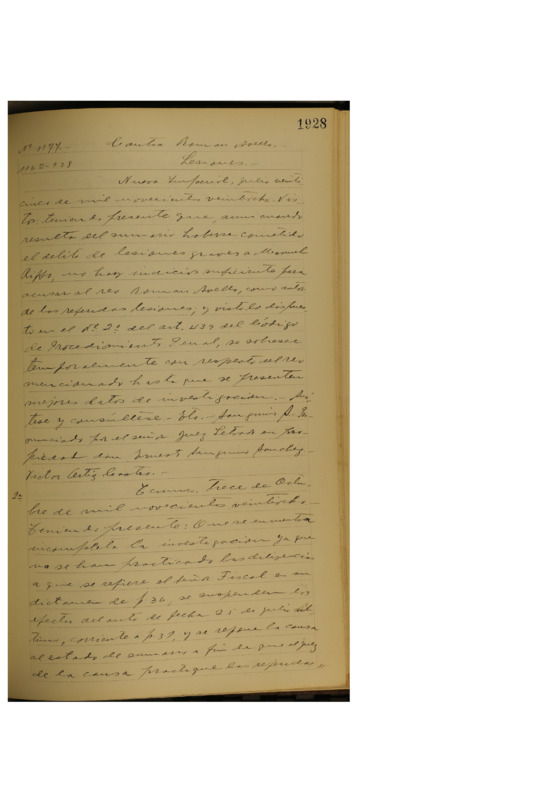 1928
Nº 1194.- Contra Roman Avello.-
Lesiones.-
Nueva Imperial, julio veinti
cinco de mil novecientos veintiocho. Vis-
tos teniendo presente que, aun cuando
resulta del sumario haberse cometido
el delito de lesiones graves a Manuel
Riffo, no hay indicios suficiente para
acusar al reo Roman Avello, como autor
de las referidas lesiones; y visto lo dispues
to en el Nº 2º del art. 439 del Código
de Procedimiento Penal, se sobresee
temporalmente con respecto al reo
mencionado hasta que se presenten
mejores datos de investigacion.-
tese y consúltese.- Sanguino S. Pro
nunciado por el señor Juez Letrado en pro-
piedad don Ernesto Sanguino Sanchez.-
Victor Ortiz Castro.-
2ª Temuco, Trece de Octu-
bre de mil novecientos veintiocho.-
Teniendo presente: Que se encuentra
incompleta la investigacion ya que
no se han practicado las diligencias
a que se refiere el señor Fiscal en su
dictamen de f 36, se suspenden los
efectos del auto de fecha 25 de julio úl-
timo, corriente a f 39, y se repone la causa
al estado de sumario a fin de que el juez
de la causa practique las referidas